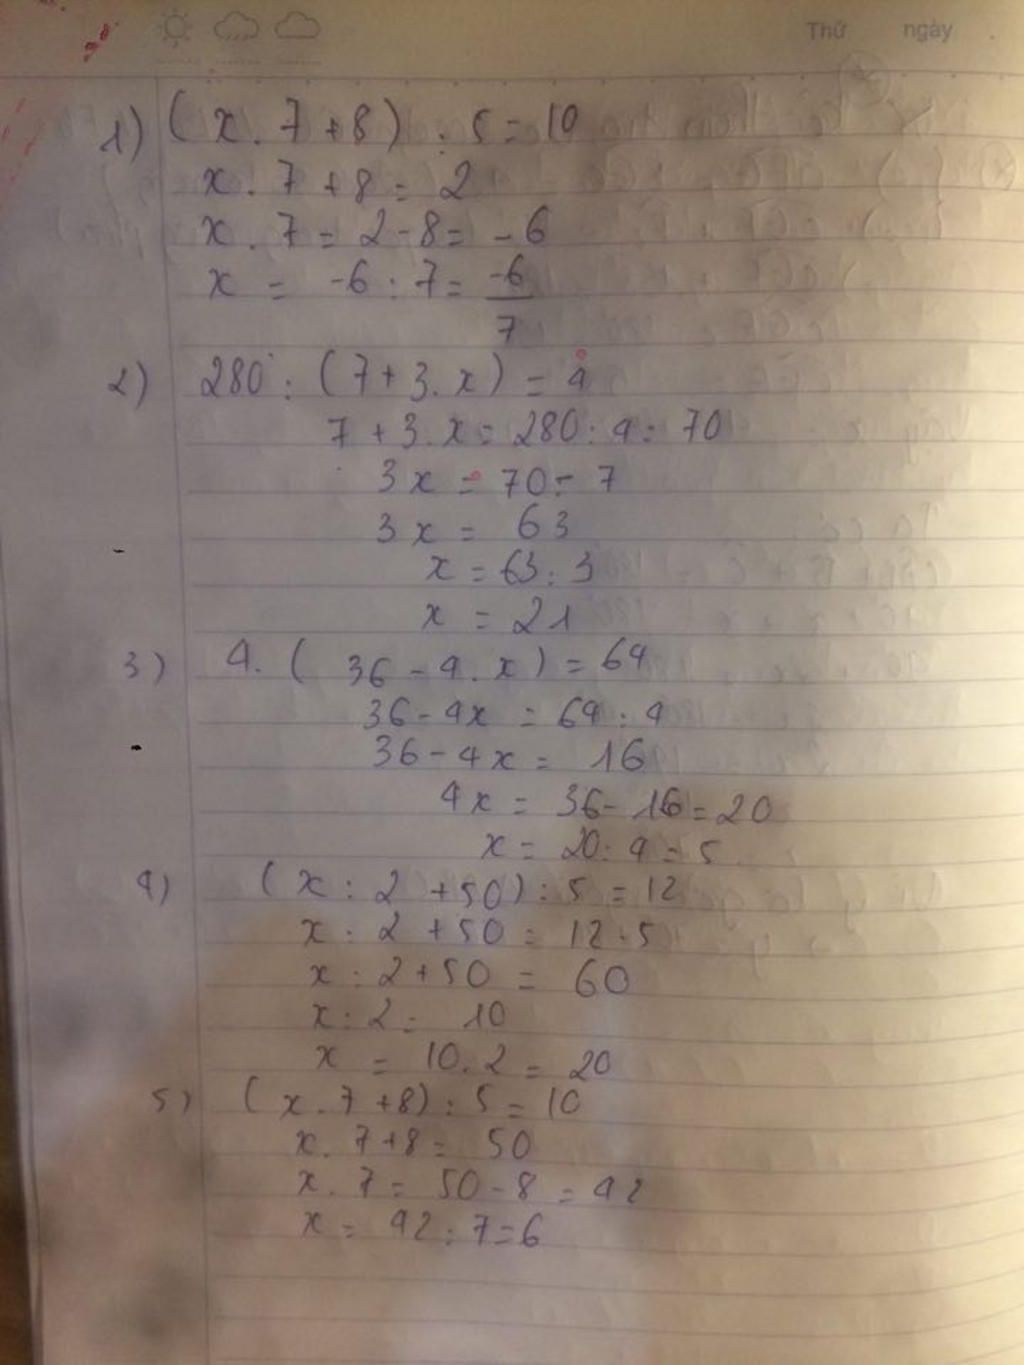 Thứ ngày
1) (x . 7 + 8) : 5 = 10
x . 7 + 8 = 2
x . 7 = 2 - 8 = -6
x = -6 : 7 = -6/7
2) 280 : (7 + 3. x) = 4
7 + 3. x = 280 : 4 = 70
3x = 70 - 7
3x = 63
x = 63 : 3
x = 21
3) 4. ( 36 - 4. x ) = 64
36 - 4x = 64 : 4
36 - 4x = 16
4x = 36 - 16 = 20
x = 20 : 4 = 5
4) (x : 2 + 50) : 5 = 12
x : 2 + 50 = 12 . 5
x : 2 + 50 = 60
x : 2 = 10
x = 10. 2 = 20
5) (x . 7 + 8) : 5 = 10
x . 7 + 8 = 50
x . 7 = 50 - 8 = 42
x = 42 : 7 = 6